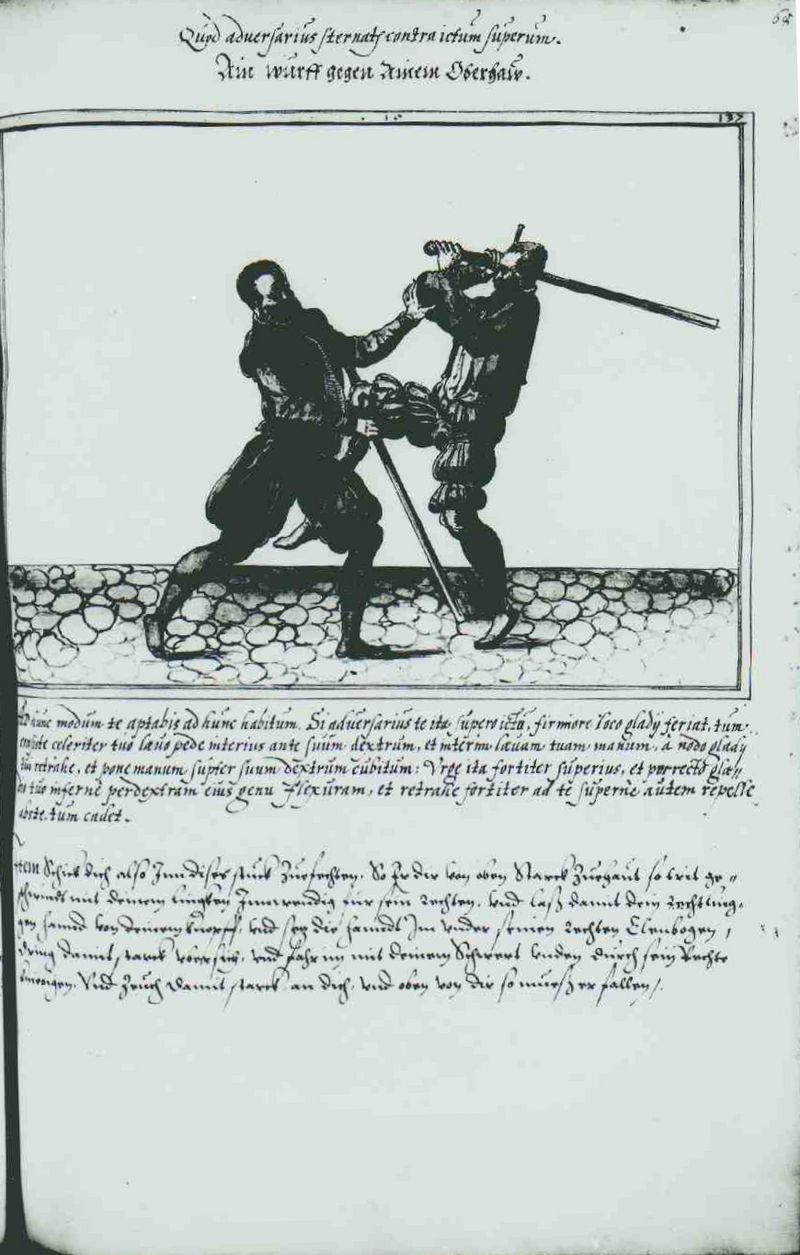 Quod adversarius sternatr contra ictum superum.
Ain wurff gegen Ainem Oberhaw.
68
137
Ad hunc modum te aptabis ad hunc habitum. Si adversarius te ita supero ictu, firmiore loco gladÿ feriat, tum
celeriter tuo laevo pede interius ante suum dextrum, et interim laevam tuam manum, a nodo gladÿ
tui retrahe, et pone manum super suum dextrum cubitum: Urge ita fortiter superius, et porrecto
tuo inferne per dextram eius genu flexuram, et retrahe fortiter ad te superne autem repelle
abste, tum cadet.
Item Schick dich also Inn dises stuck Zuefechten. So Er dir von oben Starck Zuehaut so trit ge=
schwindt mit deinem lincken Innwendig für sein rechten, vnd laß damit dein
hannd von deinem knopff, vnd setz die hanndt Im vnder seinen rechten Elenbogen,
dring damit starck vbersich, vnd fahr im mit deinem Schwert vnden durch sein Rechte
kniebigen. Vnd Zeuch damit starck an dich, vnd oben von dir so mueß er fallen.